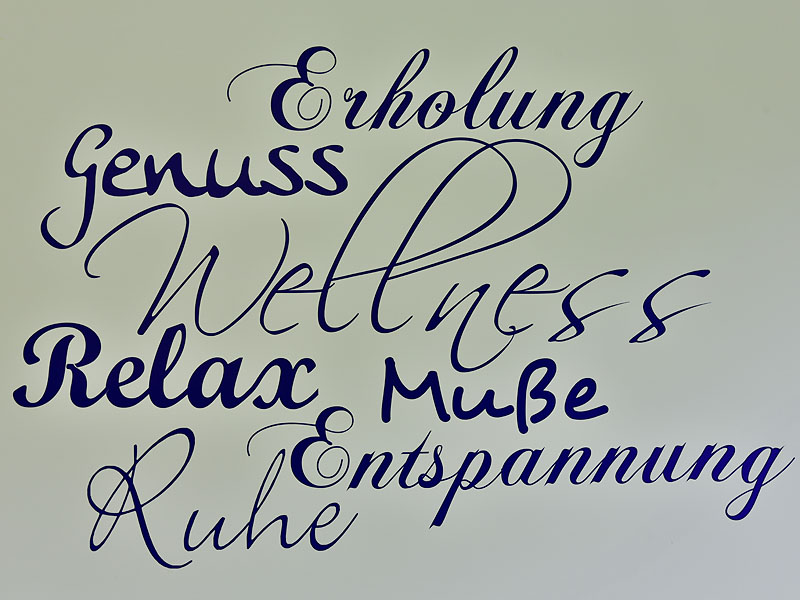 Erholung
Genuss
Wellness
Relax
Muße
Entspannung
Ruhe